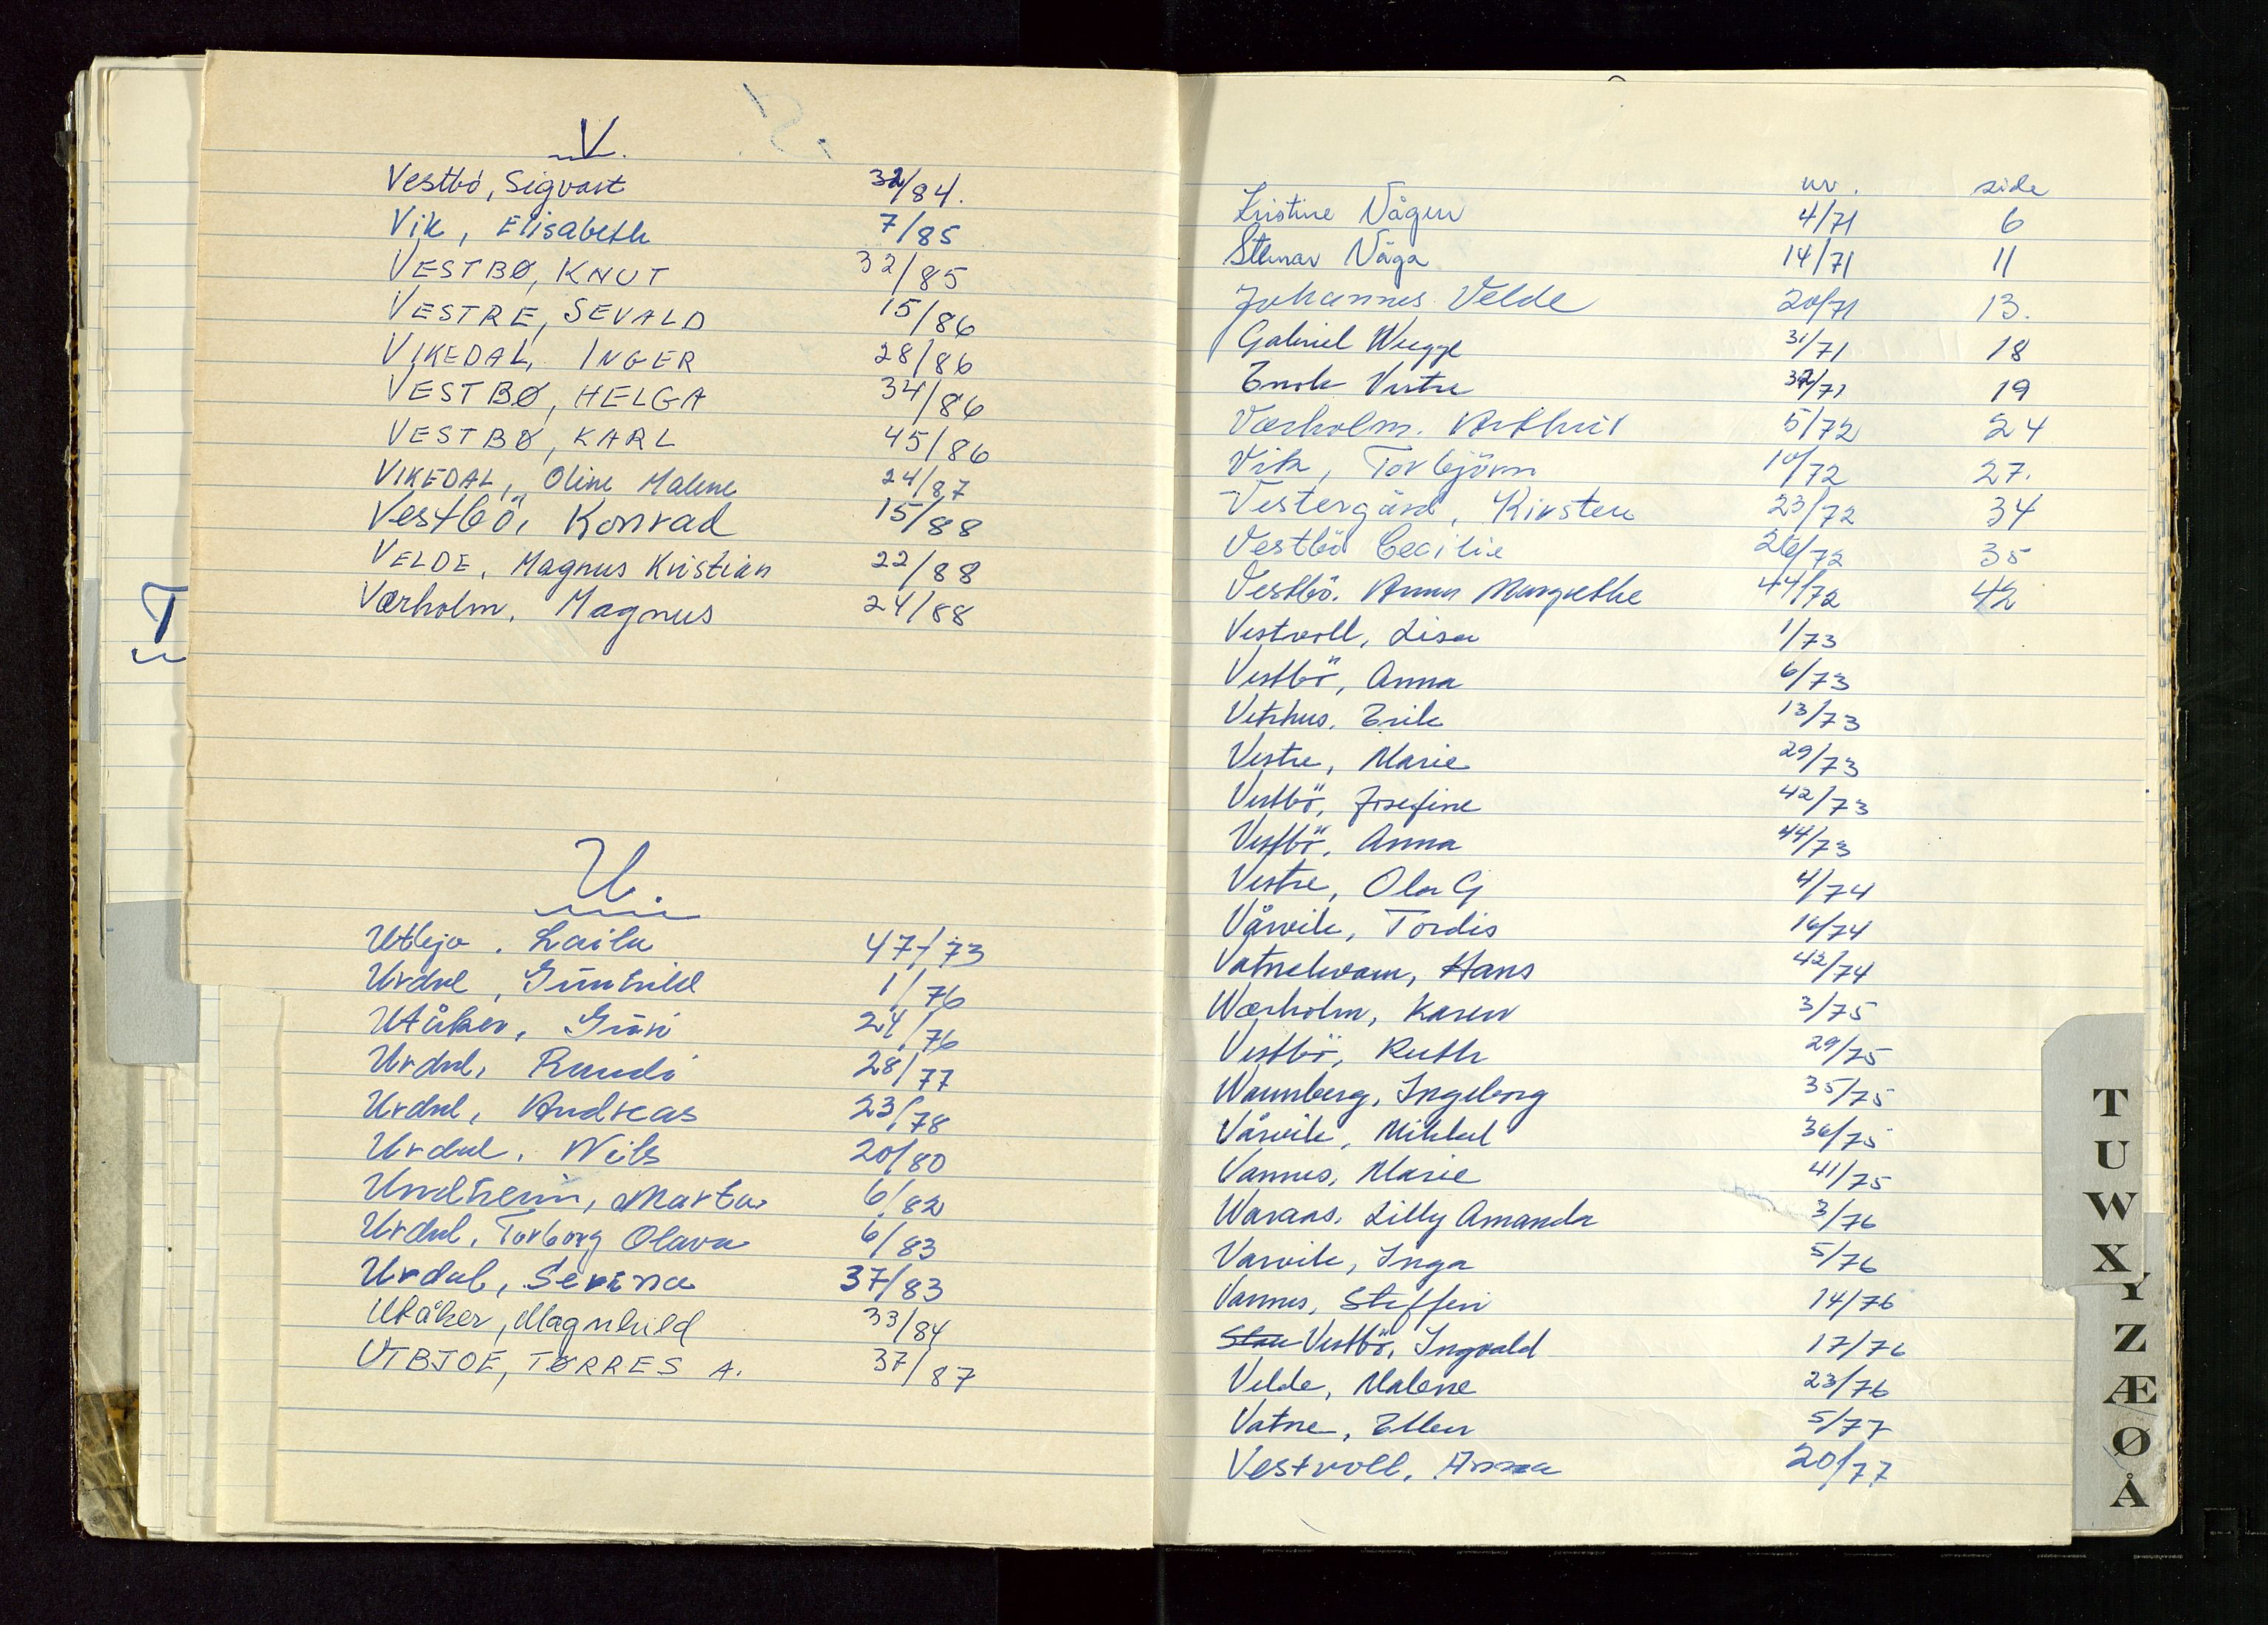 V.
Vestbö, Sigvart 32/84.
Vik, Elisabeth 7/85
VESTBØ, KNUT 32/85
VESTRE, SEVALD 15/86
VIKEDAL, INGER 28/86
VESTBØ, HELGA 34/86
VESTBØ, KARL 45/86
VIKEDAL, Oline Malene 24/87
Vestbö, Konrad 15/88
VELDE, Magnus Kristian 22/88
Værholm, Magnus 24/88
T
U.
Laila 47/73
Urdal, Gunhild 1/76
Utåker, Guri 24/76
Urdal, Randi 28/77
Urdal, Andreas 23/78
Urdal, Nils 20/80
Undheim, Marta 6/82
Urdal, Torborg Olava 6/83
Urdal, Serina 37/83
Utåker, Magnhild 33/84
UTBJOE, TØRRES A. 37/87
nr. side
Kristine Vågen 4/71 6
Steinar Våga 14/71 11
Johannes Velde 20/71 13.
Gabriel 31/71 18
Enok Vestre 32/71 19
Værholm. Arthur 5/72 24
Vik, Torbjörn 10/72 27.
Vestergård, Kirsten 23/72 34
Vestbö Cecilie 26/72 35
Vestbö. Anna Margrethe 44/72 42
Vestvoll, Lisa 1/73
Vestbö, Anna 6/73
Vetrhus, Erik 13/73
Vestre, Marie 29/73
Vestbö, Josefine 42/73
Vestbö, Anna 44/73
Vestre, Ola G 4/74
Vårvik, Tordis 16/74
Vatnekvam, Hans 42/74
Wærholm, Karen 3/75
Vestbö, Ruth 29/75
Warnberg, Ingeborg 35/75
Vårvik, Mikkel 36/75
Vannes, Marie 41/75
Waraas, Lilly Amanda 3/76
Varvik, Inga 5/76
Vannes, Steffen 14/76
Vestbö, Ingvald 17/76
Velde, Malene 23/76
Vatne, Ellen 5/77
Vestvoll, Anna 20/77
T
U
W
X
Y
Z
Æ
Ø
Å